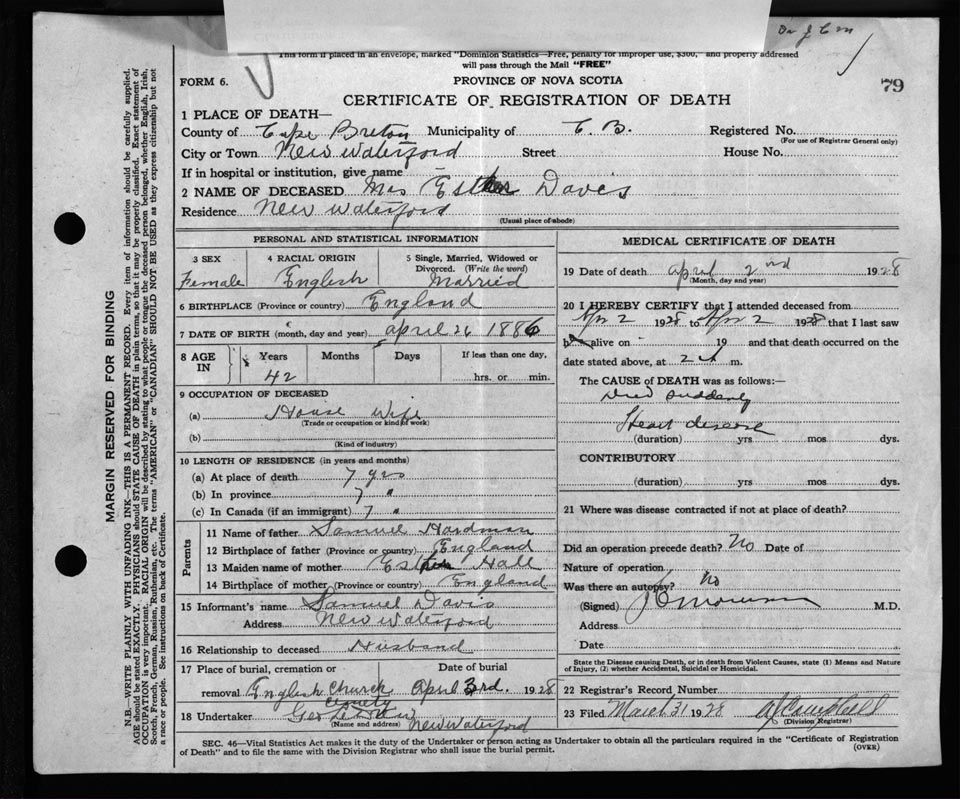 Dr J C M
This form if placed in an envelope, marked "Dominion Statistics—Free, penalty for improper use, $300," and properly addressed
will pass through the Mail "FREE"
FORM 6.
PROVINCE OF NOVA SCOTIA
79
CERTIFICATE OF REGISTRATION OF DEATH
1 PLACE OF DEATH—
County of Cape Breton Municipality of C. B. Registered No.
(For use of Registrar General only)
City or Town New Waterford Street House No.
If in hospital or institution, give name
2 NAME OF DECEASED Mrs Esther Davis
Residence New Waterford
(Usual place of abode)
PERSONAL AND STATISTICAL INFORMATION
3 SEX 4 RACIAL ORIGIN 5 Single, Married, Widowed or
Divorced. (Write the word)
Female English Married
6 BIRTHPLACE (Province or country) England
7 DATE OF BIRTH (month, day and year) april 26 1886
8 AGE IN Years Months Days If less than one day,
42 hrs. or min.
9 OCCUPATION OF DECEASED
(a) House Wife
(Trade or occupation or kind of work)
(b)
(Kind of industry)
10 LENGTH OF RESIDENCE (in years and months)
(a) At place of death 7 yrs
(b) In province 7 "
(c) In Canada (if an immigrant) 7 "
Parents
11 Name of father Samuel Hardman
12 Birthplace of father (Province or country) England
13 Maiden name of mother Esther Hall
14 Birthplace of mother (Province or country) England
15 Informant's name Samuel Davis
Address New Waterford
16 Relationship to deceased Husband
17 Place of burial, cremation or Date of burial
removal English Church April 3rd. 1928
County
18 Undertaker Geo New Waterford
(Name and address)
MEDICAL CERTIFICATE OF DEATH
19 Date of death april 2nd 1928
(Month, day and year)
20 I HEREBY CERTIFY that I attended deceased from
Apr 2 1928 to Apr 2 1928 that I last saw
h alive on 19 and that death occurred on the
date stated above, at 2 A m.
The CAUSE of DEATH was as follows:—
Died suddenly
Heart disease
(duration) yrs mos dys.
CONTRIBUTORY
(duration) yrs. mos dys.
21 Where was disease contracted if not at place of death?
Did an operation precede death? No Date of
Nature of operation
Was there an autopsy? no
(Signed) M.D.
Address
Date
State the Disease causing Death, or in death from Violent Causes, state (1) Means and Nature
of Injury, (2) whether Accidental, Suicidal or Homicidal.
22 Registrar's Record Number
23 Filed March 31 1928 A J Campbell
(Division Registrar)
SEC. 46—Vital Statistics Act makes it the duty of the Undertaker or person acting as Undertaker to obtain all the particulars required in the "Certificate of Registration
of Death" and to file the same with the Division Registrar who shall issue the burial permit.
(OVER)
MARGIN RESERVED FOR BINDING
N.B.—WRITE PLAINLY WITH UNFADING INK—THIS IS A PERMANENT RECORD. Every item of information should be carefully supplied.
AGE should be stated EXACTLY. PHYSICIANS should STATE CAUSE OF DEATH in plain terms, so that it may be properly classified. Exact statement of
OCCUPATION is very important. RACIAL ORIGIN will be described by stating to what people or tongue the deceased person belonged, whether English, Irish,
Scotch, French, German, Russian, Ruthenian, etc. The terms "AMERICAN" or "CANADIAN" SHOULD NOT BE USED as they express citizenship but not
a race or people. See instructions on back of Certificate.